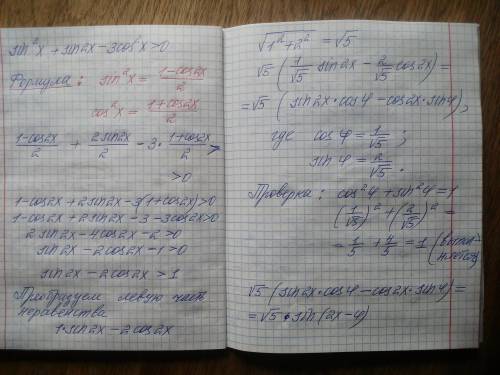 sin²x + sin2x - 3cos²x > 0
Формула: sin²x = (1-cos2x)/2
cos²x = (1+cos2x)/2
(1-cos2x)/2 + 2sin2x/2 - 3·(1+cos2x)/2 >
>0
1-cos2x+2sin2x-3(1+cos2x)>0
1-cos2x+2sin2x-3-3cos2x>0
2sin2x-4cos2x-2>0
sin2x-2cos2x-1>0
sin2x-2cos2x>1
Преобразуем левую часть
неравенства
1·sin2x-2cos2x
√(1²+2²) = √5
√5 (1/√5 sin2x - 2/√5 cos2x) =
= √5 (sin2x·cosφ - cos2x·sinφ),
где cosφ = 1/√5 ;
sinφ = 2/√5 .
Проверка: cos²φ + sin²φ = 1
(1/√5)² + (2/√5)² =
= 1/5 + 4/5 = 1 (выпол-
няется)
√5 (sin2x·cosφ - cos2x·sinφ) =
= √5 · sin(2x-φ)